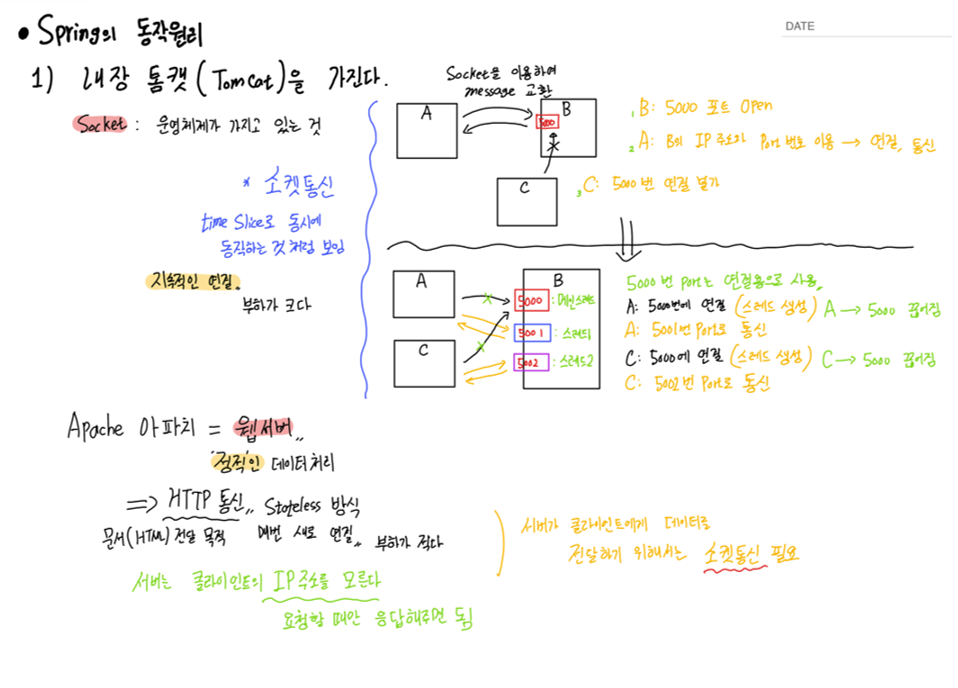 • Spring의 동작원리
DATE
1) 내장 톰캣(Tomcat)을 가진다.
Socket : 운영체제가 가지고 있는 것
* 소켓통신
time Slice로 동시에
동작하는 것처럼 보임
지속적인 연결.
부하가 크다
Socket을 이용하여
message 교환
A
B
5000
C
1 B: 5000 포트 Open
2 A: B의 IP 주소와 Port 번호 이용 → 연결, 통신
3 C: 5000번 연결 불가
A
B
C
5000 : 메인스레드
5001 : 스레드1
5002 : 스레드2
5000번 Port는 연결용으로 사용,
A: 5000번에 연결 (스레드 생성) A → 5000 끊어짐
A: 5001번 Port로 통신
C: 5000에 연결 (스레드 생성) C → 5000 끊어짐
C: 5002번 Port로 통신
Apache 아파치 = 웹서버,,
'정적'인 데이터처리
⇒ HTTP 통신,, Stateless 방식
문서(HTML) 전달 목적 매번 새로 연결,, 부하가 적다
서버는 클라이언트의 IP주소를 모른다
요청할 때만 응답해주면 됨
서버가 클라이언트에게 데이터로
전달하기 위해서는 소켓통신 필요